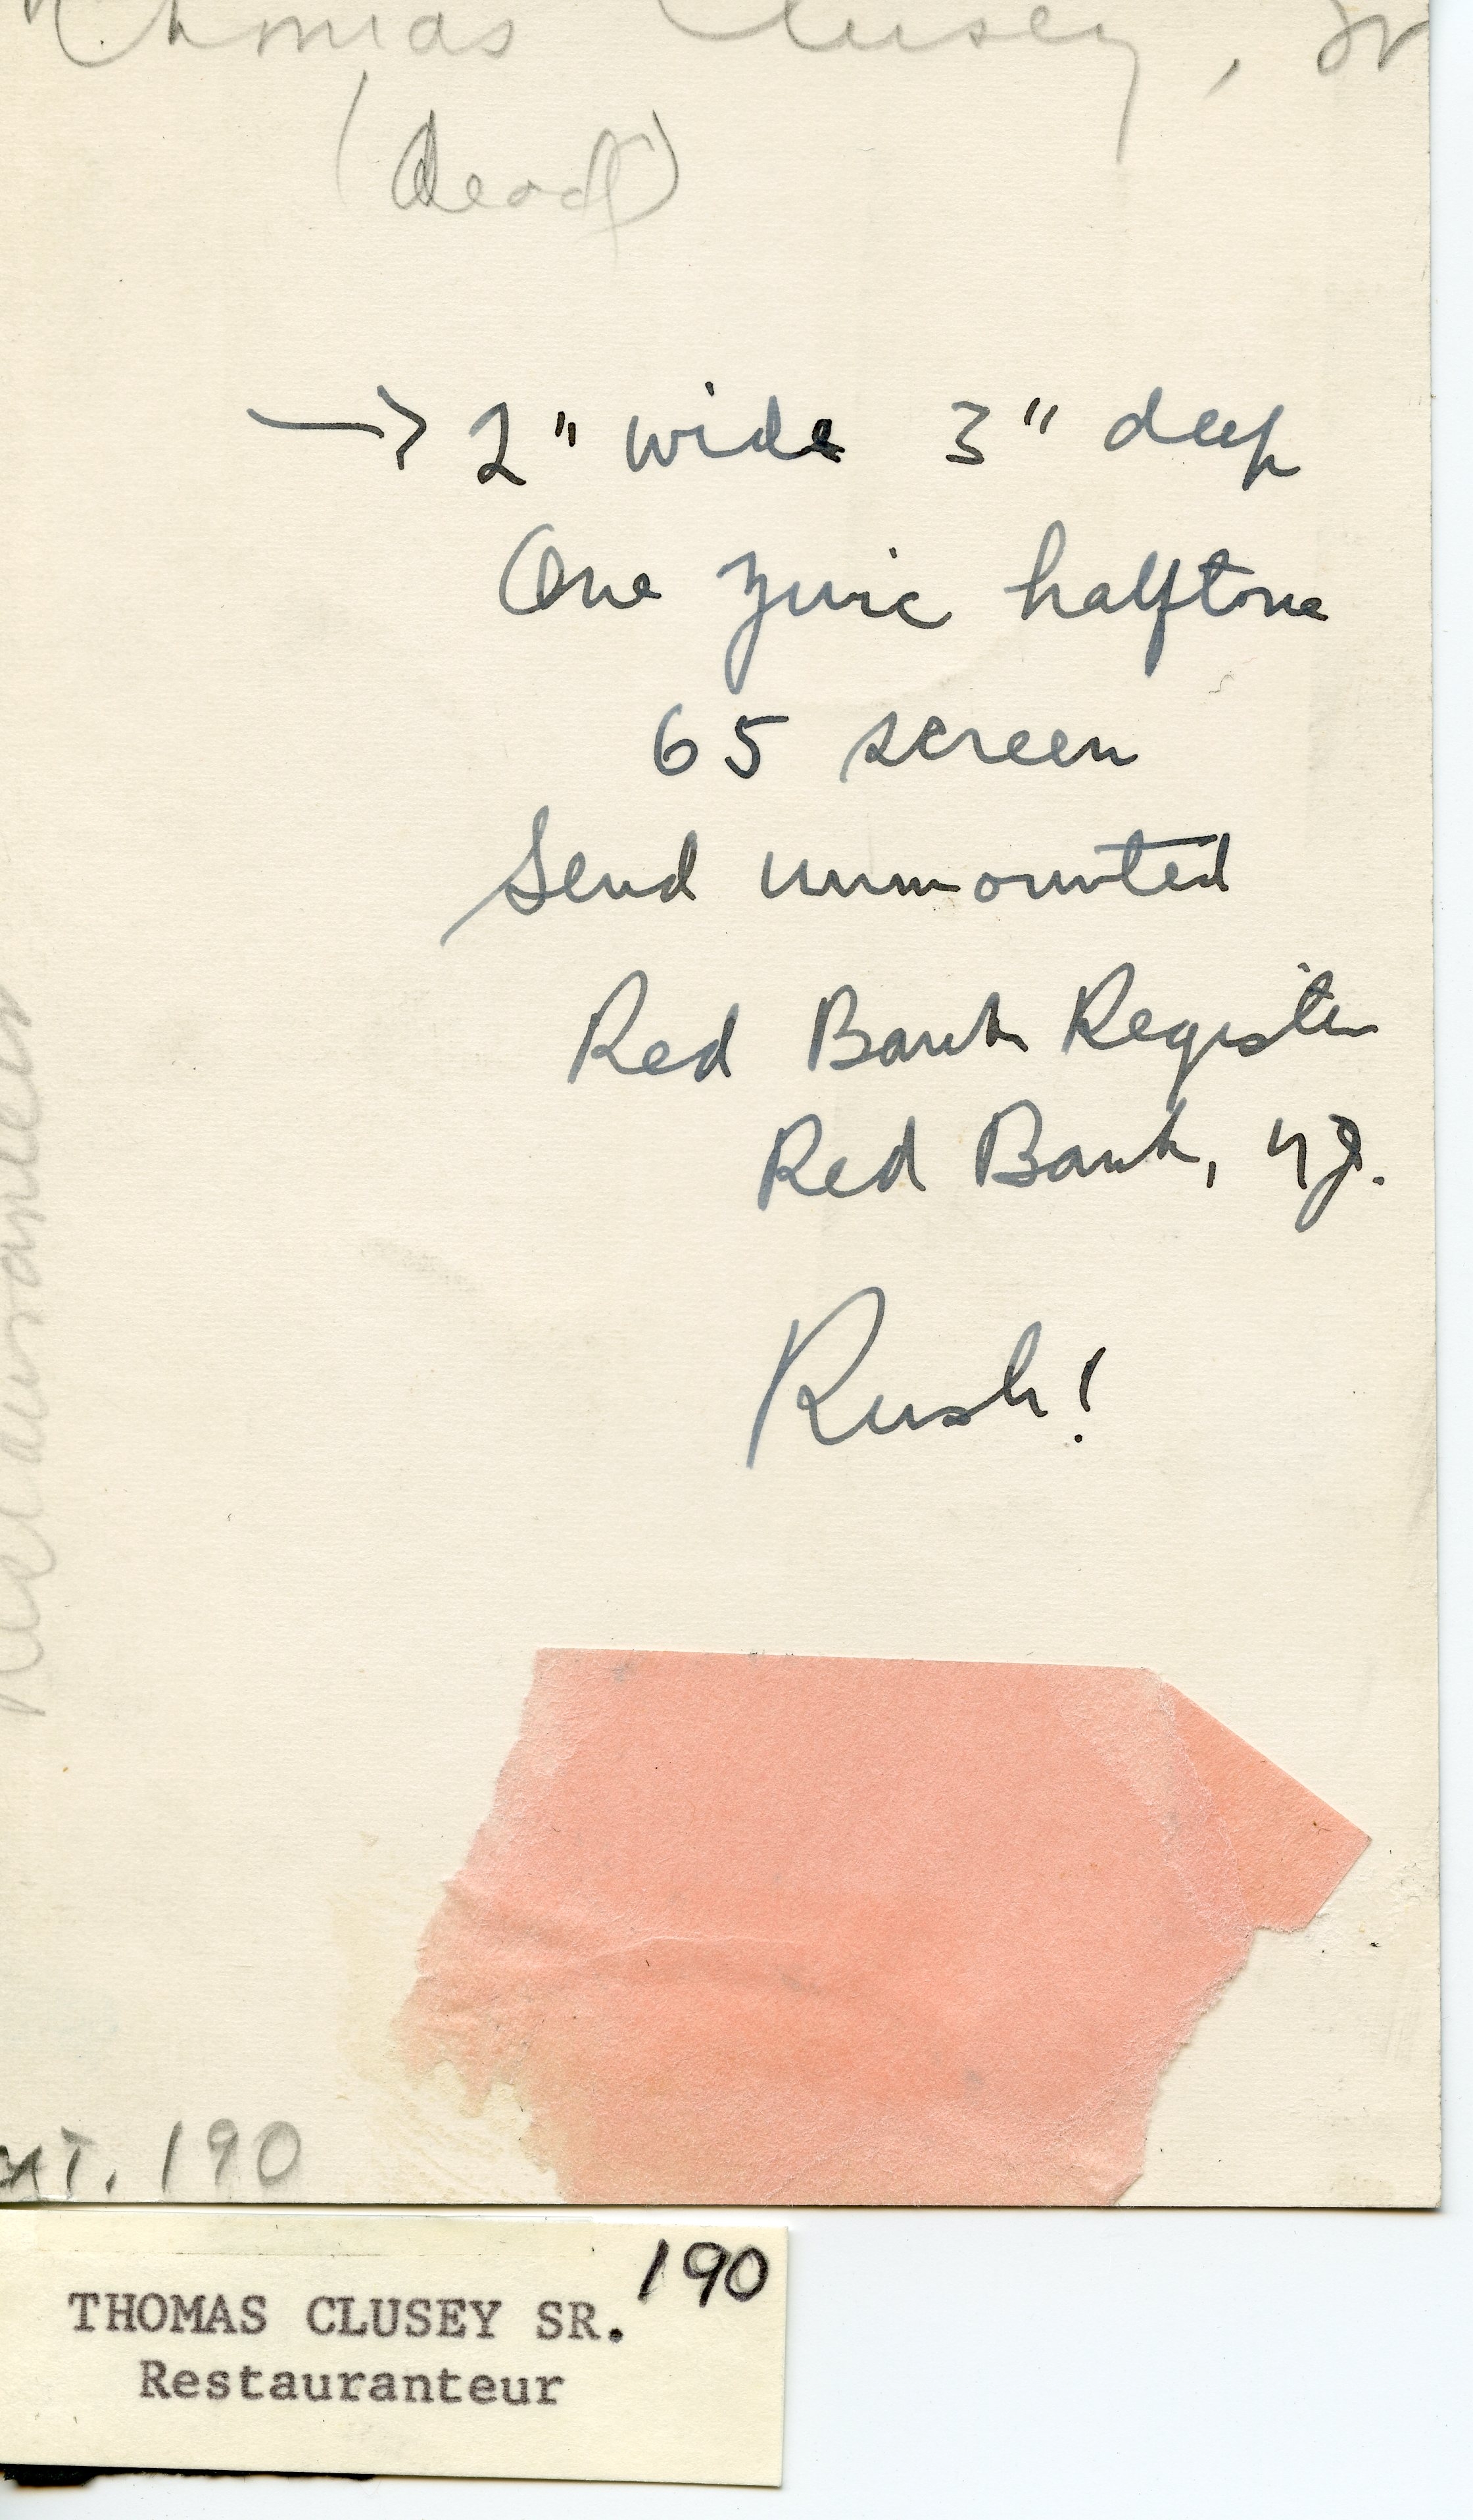 Thomas Clusey, Sr
(dead)
→ 2" wide 3" deep
One zinc halftone
65 screen
Send unmounted
Red Bank Register
Red Bank, NJ.
Rush!
Restauranteur
CAT. 190
190
THOMAS CLUSEY SR.
Restauranteur